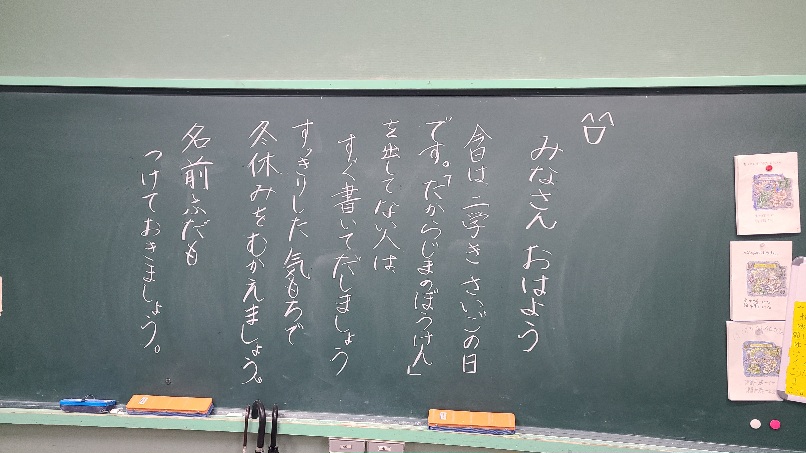 みなさん おはよう
今日は 二学き さいごの日
です。「たからじまのぼうけん」
を出してない人は
すぐ書いてだしましょう
すっきりした 気もちで
冬休みをむかえましょう。
名前ふだも
つけておきましょう。